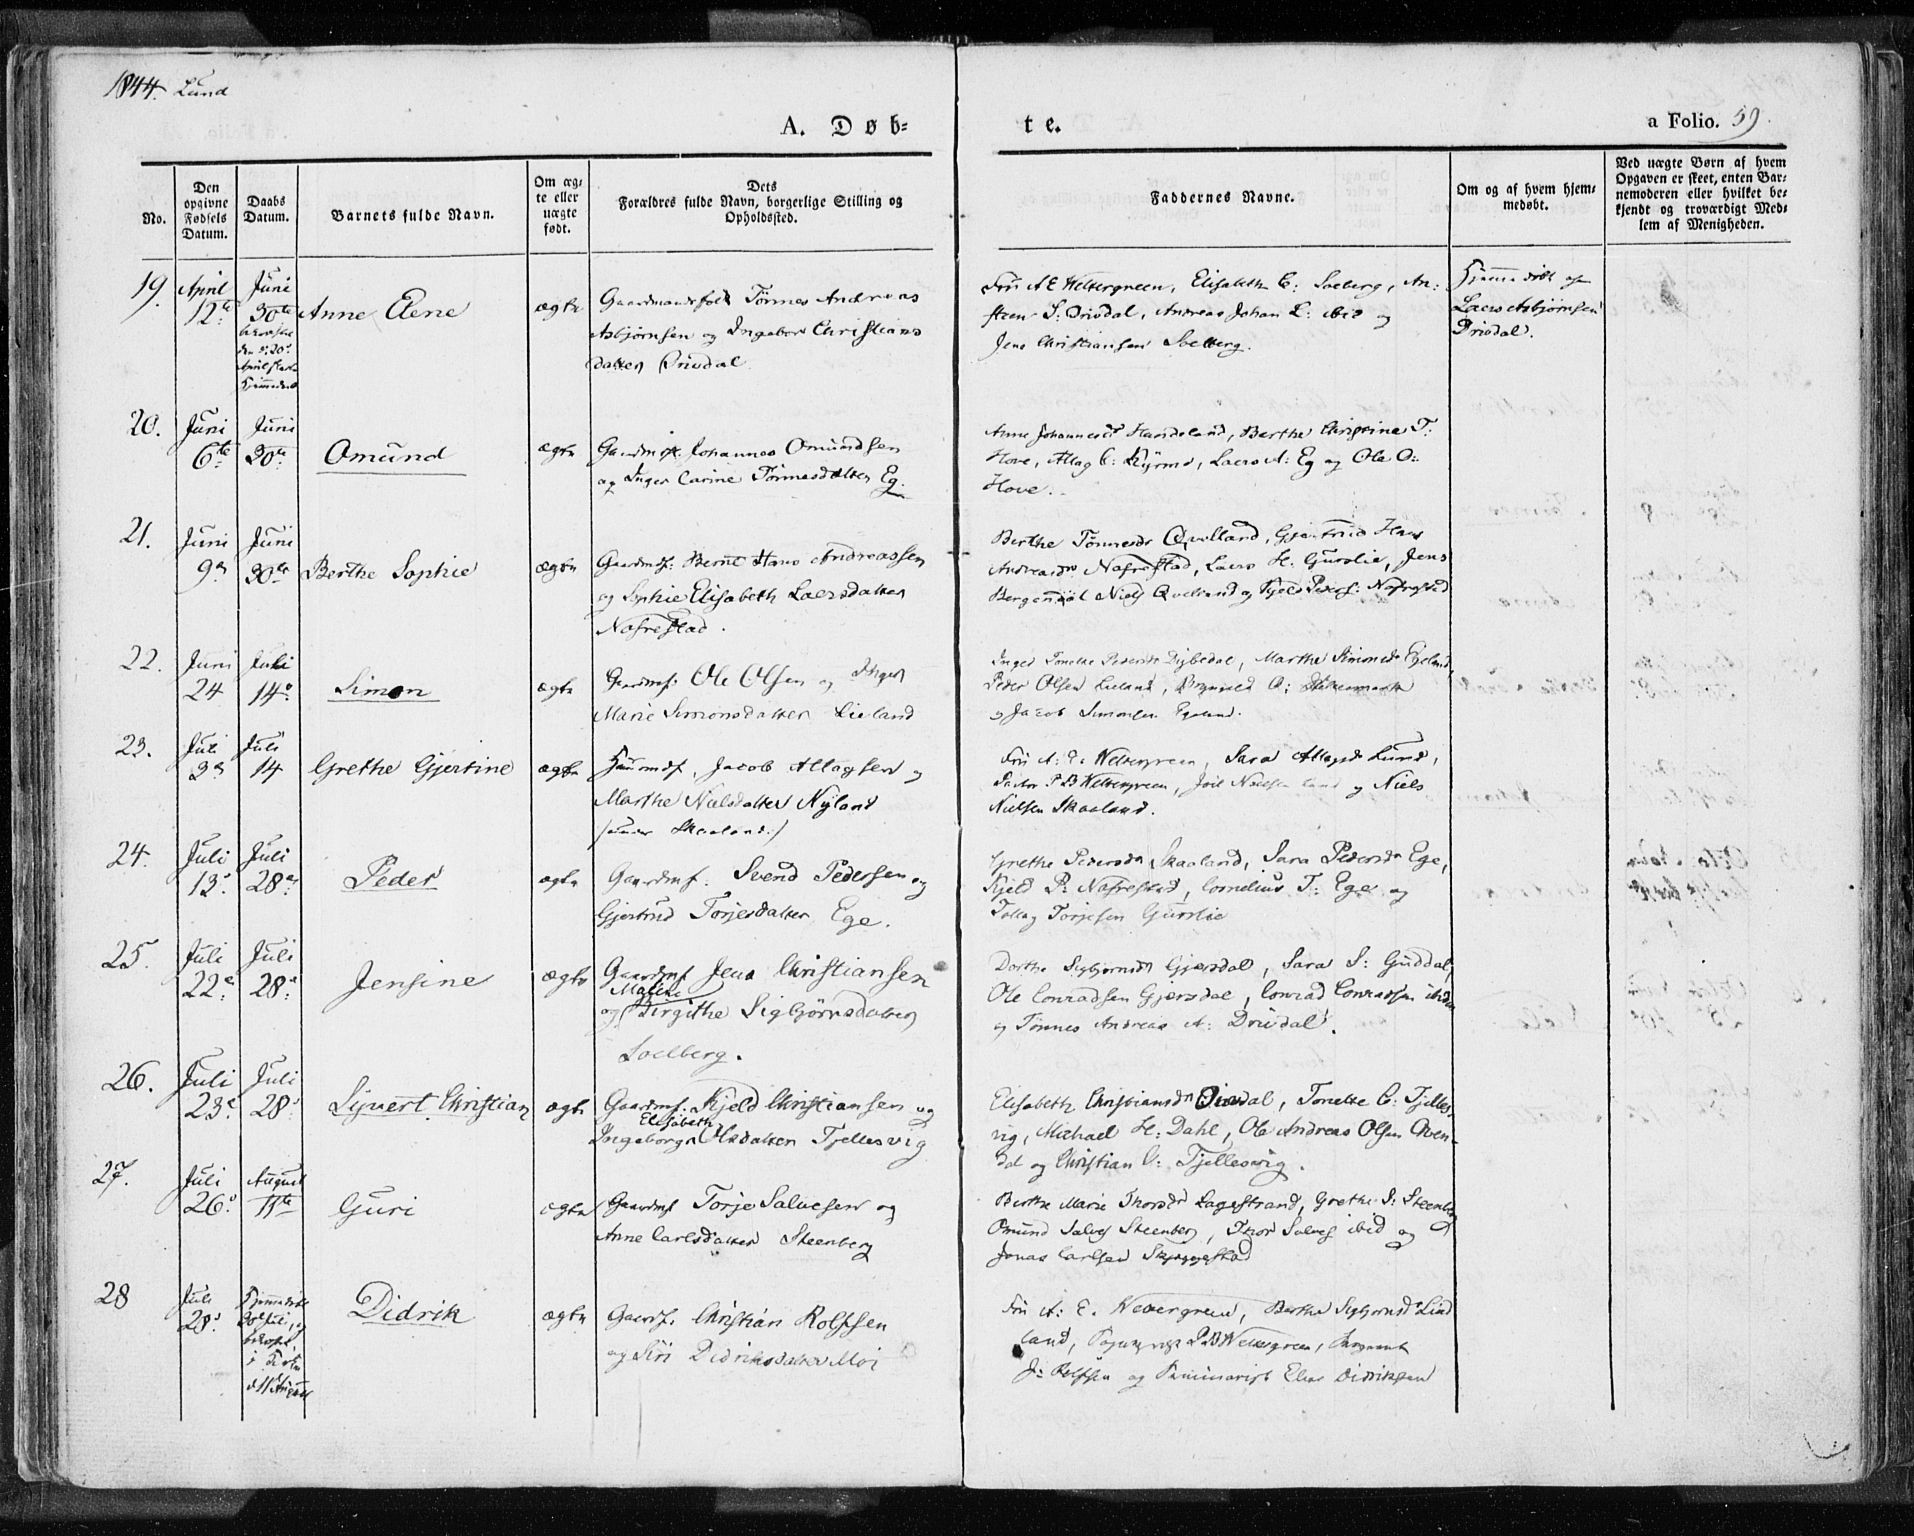 1844. Lund
A. Døb-
te.
a Folio. 59.
No.
Den opgivne Fødsels Datum.
Daabs Datum.
Barnets fulde Navn.
Om ægte eller uægte født.
Dets Forældres fulde Navn, borgerlige Stilling og Opholdssted.
Faddernes Navne.
Om og af hvem hjemmedøbt.
Ved uægte Børn af hvem Opgaven er skeet, enten Barnemoderen eller hvilket bekjendt og troværdigt Medlem af Menigheden.
19. April 12te Juni 30te
April
Anne Elene
ægte
Tønnes Andreas
Asbjørnsen og Ingebor Christians
datter Drivdal
A E Weltergreen, Elisabeth C: Soelberg, An-
steen S: Drivdal, Andreas Johan L: ibid og
Jens Christiansen Soelberg.
Hjemmedøbt af
Laers Asbjørnsen
Drivdal.
20. Juni 6te Juni 30te
Omund
ægte
Johannes Omundsen
og Inger Carine Tönnesdatter Eg.
Anne Johannesdr Handeland, Berthe Christine T:
Hove, Attag C: Laers A: Eg og Ole O:
Hove.
21. Juni 9de Juni 30te
Berthe Sophie
ægte
Gaardmf: Bernt Hans Andreassen
og Sophie Elisabeth Laersdatter
Nafrestad.
Berthe Tønnesdr Qvelland, Gjertrud Hans
Andreasdr Nafrestad, Laers H: Gurslie, Jens
Niels Qvelland og Kjeld Peders: Nafrestad
22. Juni 24 Juli 14de
Simon
ægte
Gaardmf: Ole Olsen og Inger
Marie Simonsdatter Lieland
Inger Tonette Pedersdr Dybedal, Marthe Simonsdr Egeland,
Peder Olsen Lieland, O:
og Jacob Simonsen Egeland.
23. Juli 3de Juli 14
Grethe Gjertine
ægte
Huusmdf. Jacob Attagsen og
Marthe Nielsdatter Nyland
/under Skaaland:/
A: E. Weltergreen, Sara Attagsdr Lund,
Pastor P B Weltergreen, og Niels
Nielsen Skaaland.
24. Juli 13de Juli 28de
Peder
ægte
Gaardmf: Svend Pedersen og
Gjertrud Torjesdatter Ege.
Grethe Pedersdr Skaaland, Sara Pedersdr Ege,
Kjeld P: Nafrestad, Cornelius T: Ege og
Tollag Torjesen Gurslie
25. Juli 22de Juli 28de
Jensine
ægte
Gaardmf Jens Christiansen
Malene
og Birgithe Sigbjørnsdatter
Soelberg.
Dorthe Sigbjørnsdr Gjersdal, Sara S: Guddal,
Ole Conradsen Gjersdal, Conrad Conradsen ibidem
og Tønnes Andreas A: Drivdal.
26. Juli 23de Juli 28de
Sijvert Christian
ægte
Gaardmf: Kjeld Christiansen og
Elisabeth
Ingeborg Olsdatter Tjellesvig
Elisabeth Christiansdr Drivdal, Tonette C: Tjelles-
vig, Michael H: Dahl, Ole Andreas Olsen Oven-
dal og Christian C: Tjellesvig.
27. Juli 26de August 11te
Guri
ægte
Gaardmf Torje Salvesen og
Anne Carlsdatter Steenberg
Berthe Marie Thorsdr Lagestrand, Grethe S: Steenberg
Omund Salves Steenberg, Thor Salves ibid og
Jonas Carlsen Skjeggestad
28 Juli 28de
Hjemmedøbt
i
d 11 August
Didrik
ægte
Gaardf. Christian Rolfsen
og Siri Didriksdatter Moi
A: E. Wetergreen, Berthe Sigbjørnsdr Lind
land, P B Weltergreen,
J: Rolfsen og Seminarist Elias Didriksen